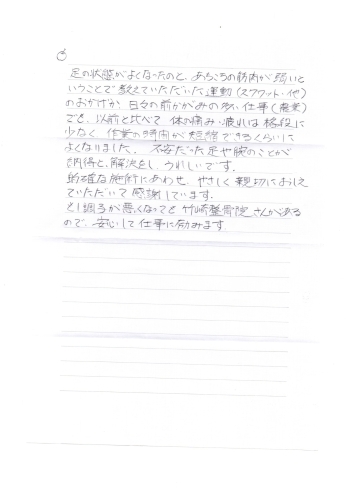 足の状態がよくなったのと、あちこちの筋肉が弱いと
いうことで教えていただいた運動(スクワット・他)
のおかげか、日々の前かがみの多い仕事(農業)
でも、以前と比べて体の痛み、疲れは格段に
少なく作業の時間が短縮できるくらいに
よくなりました。不安だった足や腕のことが
納得と、解決をし、うれしいです。
的確な施術にあわせ、やさしく親切におしえ
ていただいて感謝しています。
もし調子が悪くなっても竹崎整骨院さんがある
ので、安心して仕事に励みます。